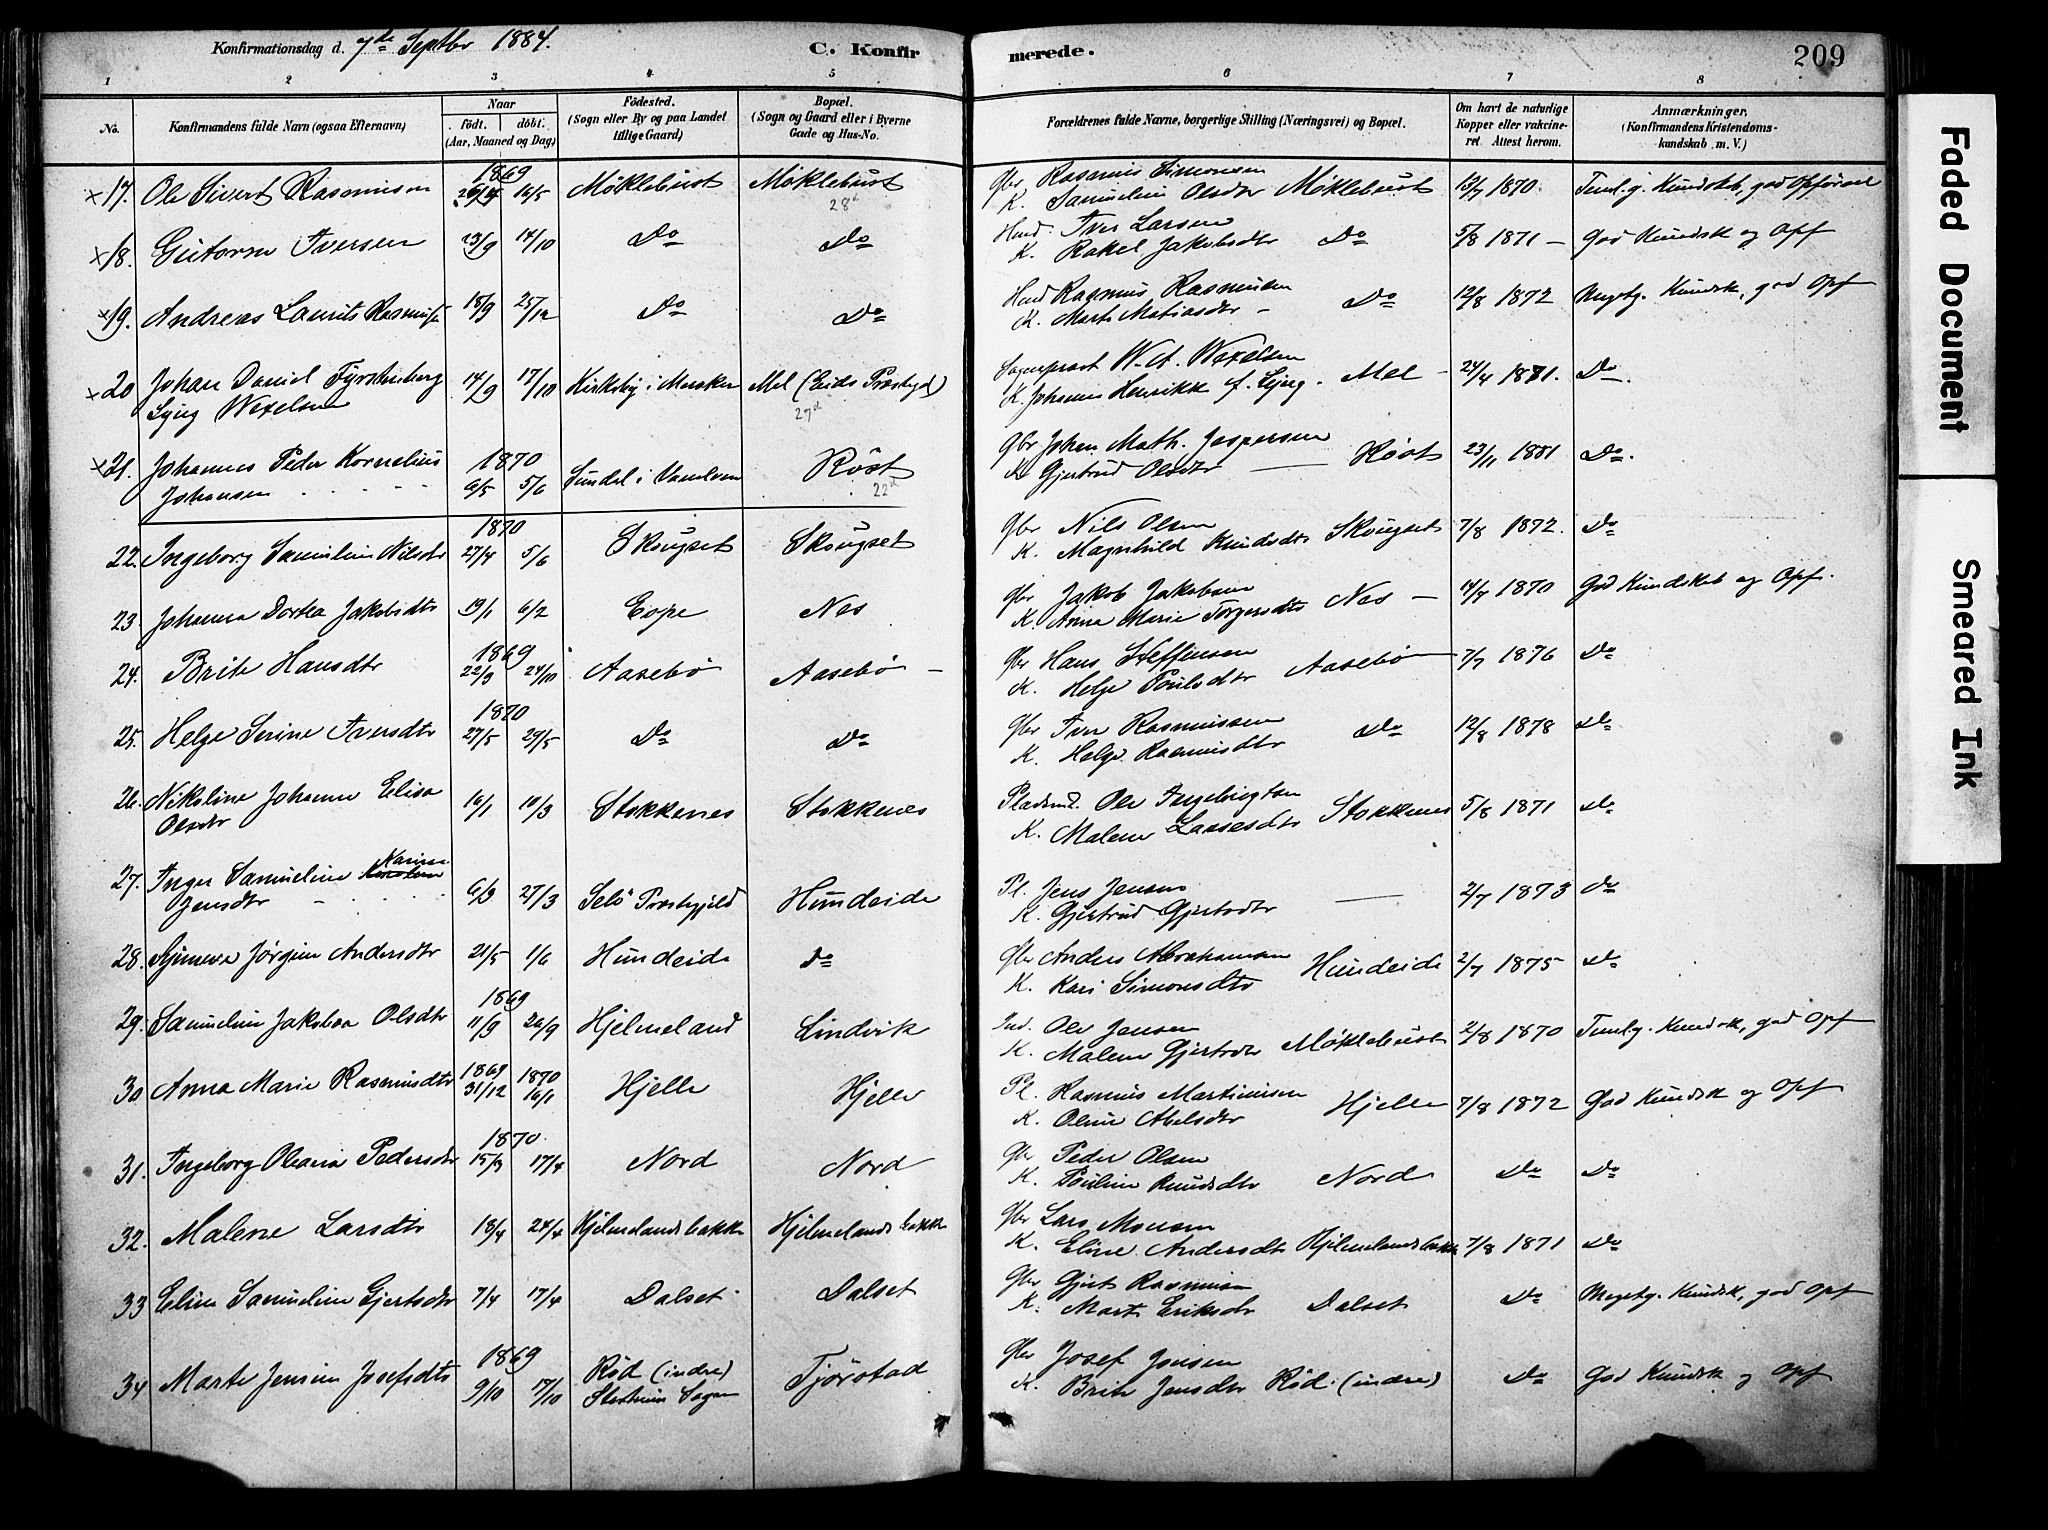 Konfirmationsdag d. 7de Septbr 1884.
C. Konfirmerede.
209
1 2 3 4 5 6 7 8
No. Konfirmandens fulde Navn (ogsaa Efternavn) Naar født. døbt. (Aar, Maaned og Dag) Fødested. (Sogn eller By og paa Landet tillige Gaard) Bopæl. (Sogn og Gaard eller i Byerne Gade og Hus-No. Forældrenes fulde Navne, borgerlige Stilling (Næringsvei) og Bopæl. Om havt de naturlige Kopper eller vakcineret. Attest herom. Anmærkninger. (Konfirmandens Kristendomskundskab m. V.)
x 17. Ole Sivert Rasmusen 1869 16/5 Møklebust Møklebust 28d Gbr Rasmus Simonsen K. Samueline Olsdtr Møklebust 13/7 1870 Temlg. Kundskb, god Opførsel
x 18. Gutorm Iversen 23/9 14/10 Do Do Iver Larsen K. Rakel Jakobsdtr Do 5/8 1871 – God Kundsk og Opf
x 19. Andreas Laurits Rasmus 18/9 25/12 Do Do Rasmus Rasmusen K. Marte Matiasdtr – Do 12/8 1872 Megetg. Kundsk, god Opf
x 20 Johan Daniel Fyrstenberg Lyng Wexelsen 14/9 17/10 Mel (Eids Præstgd) 27d Sogneprest W. A. Wexelsen K. Johanne Henrikk f. Lyng. Mel – 24/4 1881. Do.
x 21. Johannes Peder Kornelius Johansen 1870 6/5 5/6 Sundal i Vanelven Røst 22d Gbr Johan Math. Jaspersen K Gjertrud Olsdtr Røst 23/11 1881 Do.
22. Ingeborg Samueline Nilsdtr 1870 27/4 5/6 Skougset Skougset Gbr Nils Olsen K. Magnhild Knudsdtr Skougset 7/8 1872. Do
23. Johanna Dortea Jakobsdtr 19/1 6/2 Eope Nes Gbr Jakob Jakobsen K. Anne Marie Torgersdtr Nes – 1870 God Kundskab og Opf.
24. Brite Hansdtr 1869 22/9 24/10 Aasebø Aasebø – Gbr Hans Steffensen K. Helge Poulsdtr Aasebø 7/7 1876 Do
25. Helge Serine Iversdtr 1870 27/5 29/5 Do Do Gbr Iver Rasmussen K. Helge Rasmusdtr Do 12/8 1878 Do
26. Nikoline Johanne Elisa Olsdtr 16/1 10/3 Stokkenes Stokkenes Pladsmd. Ole Ingebrigtsen K. Malene Lassesdtr Stokknes 5/8 1871 Do
27. Inger Samueline Karine Jensdtr 6/3 27/3 Selø Præstegjeld Hundeide Pl. Jens Jensen K. Gjertrud Gjertsdtr 2/7 1873 Do
28. Synneve Jørgine Andersdtr 21/5 1/6 Hundeide Do Gbr Anders Abrahamsen K. Kari Simonsdtr Hundeide 2/7 1875 Do
29. Samueline Jakobea Olsdtr 1869 11/9 26/9 Hjelmeland Lindvik Ind. Ole Jensen K. Malene Gjertsdtr Møklebust 2/8 1870 Temlg. Kundsk, god Opf
30 Anna Marie Rasmusdtr 1869 31/12 1870 16/1 Hjelle Hjelle Pl. Rasmus Martinusen K. Oline Abelsdtr Hjelle 7/8 1872 God Kundsk og Opf
31. Ingeborg Oleana Pedersdtr 1870 15/3 17/4 Nord Nord Gbr Peder Olsen K. Pouline Knudsdtr Nord Do Do
32. Malene Larsdtr 18/4 24/4 Hjelmelandsbakke Hjelmelandsbakke Gbr Lars Monsen K. Eline Andersdtr Hjelmelandsbakke 7/8 1871 Do
33 Eline Samueline Gjertsdtr 7/4 17/4 Dalset Dalset Gbr Gjert Rasmusen K. Marte Eriksdtr Dalset Do Megetg. Kundsk, god Opf
34 Marte Jensine Josefsdtr 1869 9/10 17/10 Rød (indre) Sogn Tjørstad Gbr Josef Jensen K. Brite Jensdtr Rød (indre) Do God Kundsk og Opf
Faded Document
Smeared Ink